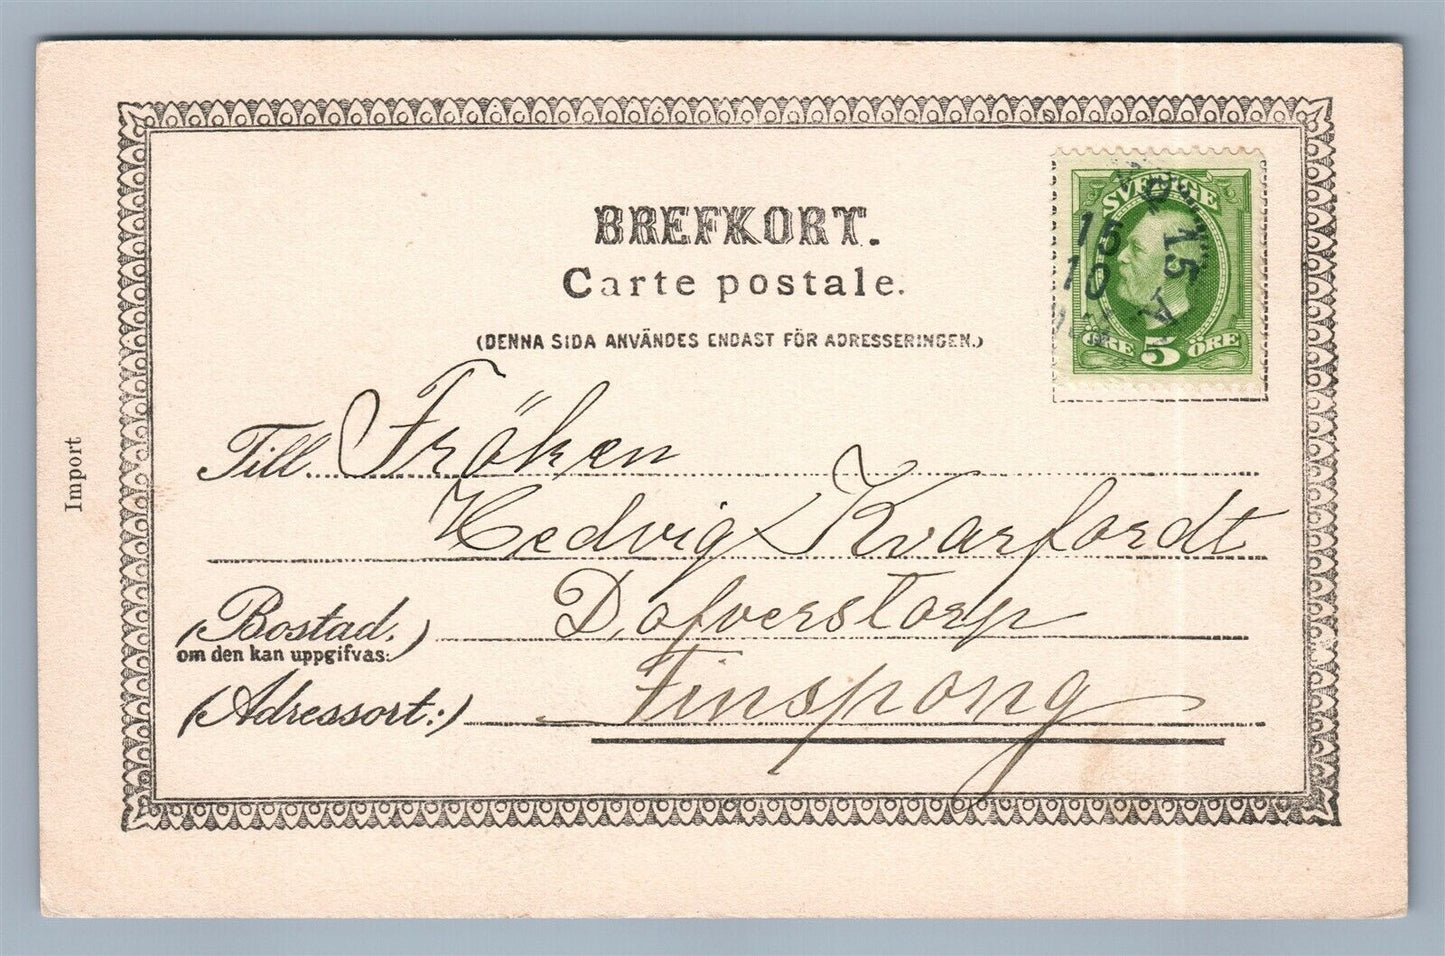 BREFKORT.
Carte postale.
(DENNA SIDA ANVÄNDES ENDAST FÖR ADRESSERINGEN.)
SVERIGE
ÖRE 5 ÖRE
15
10
15 A
Till Fröken
Hedvig Kvarfordt
(Bostad.) Dofverstorp
om den kan uppgifvas:
(Adressort:) Finspong
Import